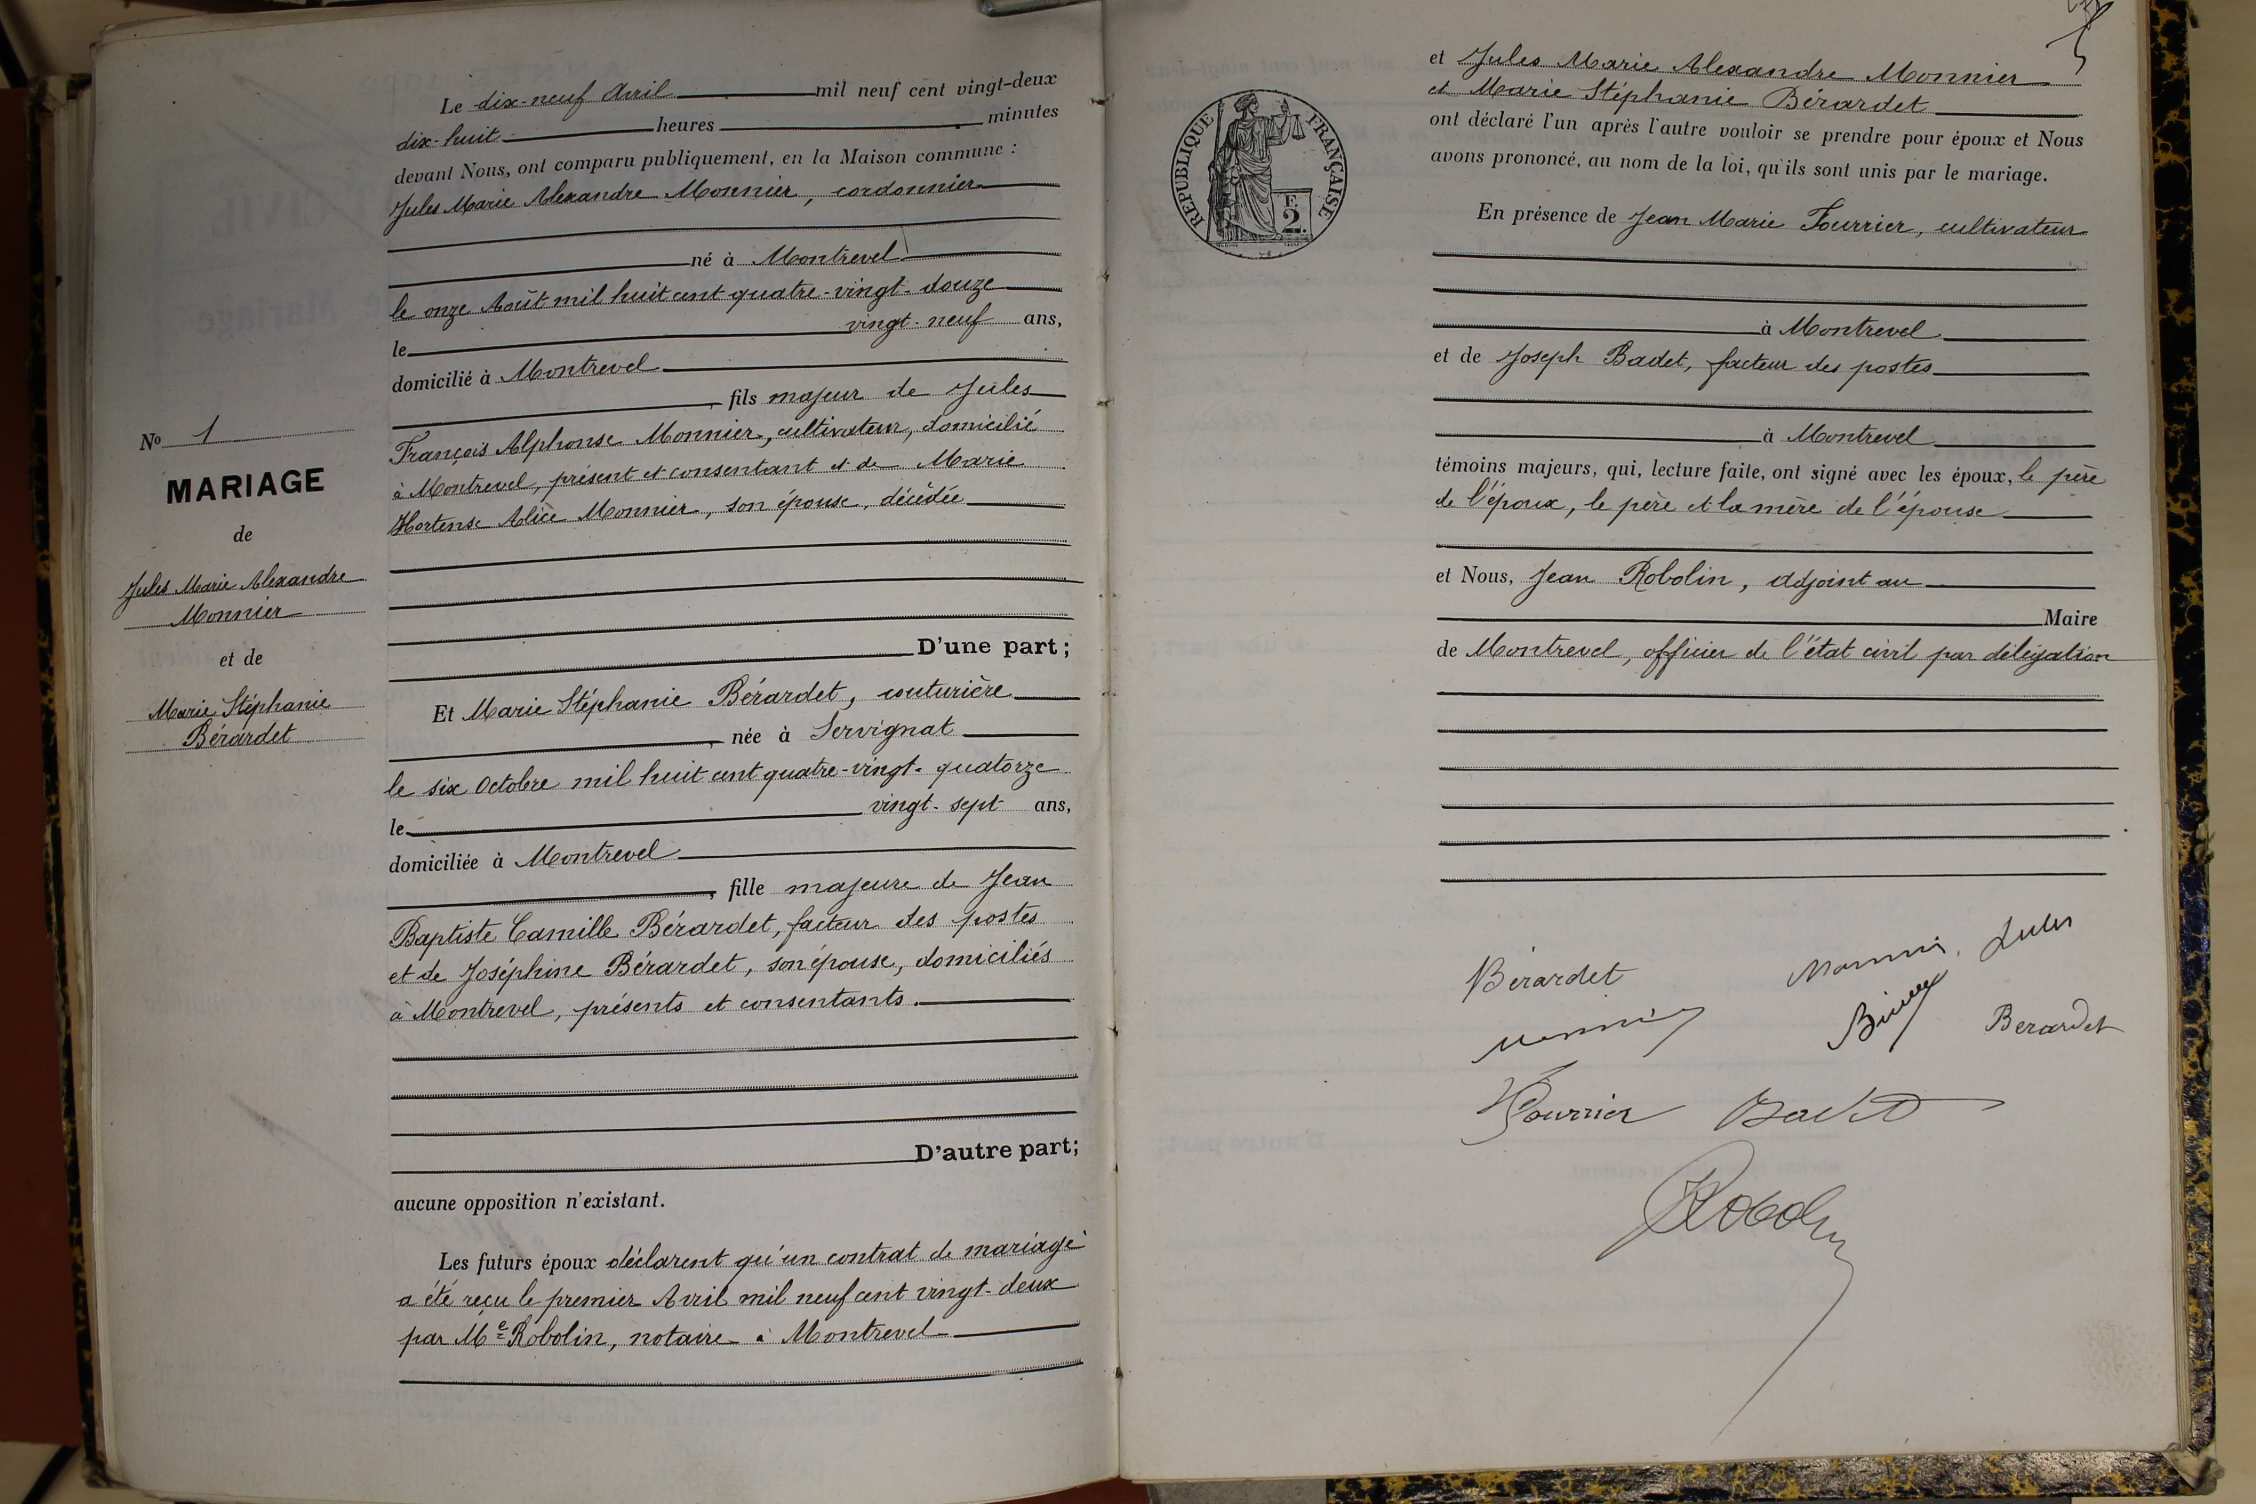 Le dix-neuf Avril mil neuf cent vingt-deux
dix-huit heures minutes
devant Nous, ont comparu publiquement, en la Maison commune :
Jules Marie Alexandre Monnier, cordonnier
né à Montrevel
le onze Août mil huit cent quatre-vingt-douze
le vingt-neuf ans,
domicilié à Montrevel
, fils majeur de Jules
François Alphonse Monnier, cultivateur, domicilié
à Montrevel, présent et consentant et de Marie
Hortense Alice Monnier, son épouse, décédée
D'une part ;
Et Marie Stéphanie Bérardet, couturière
, née à Servignat
le six Octobre mil huit cent quatre-vingt-quatorze
le vingt-sept ans,
domiciliée à Montrevel
, fille majeure de Jean
Baptiste Camille Bérardet, facteur des postes
et de Joséphine Bérardet, son épouse, domiciliés
à Montrevel, présents et consentants.
D'autre part ;
aucune opposition n'existant.
Les futurs époux déclarent qu'un contrat de mariage
a été reçu le premier Avril mil neuf cent vingt-deux
par Me Robolin, notaire à Montrevel
No 1
MARIAGE
de
Jules Marie Alexandre
Monnier
et de
Marie Stéphanie
Bérardet
RÉPUBLIQUE FRANÇAISE
F.
2.
et Jules Marie Alexandre Monnier
et Marie Stéphanie Bérardet
ont déclaré l'un après l'autre vouloir se prendre pour époux et Nous
avons prononcé, au nom de la loi, qu'ils sont unis par le mariage.
En présence de Jean Marie Fourrier, cultivateur
à Montrevel
et de Joseph Badet, facteur des postes
à Montrevel
témoins majeurs, qui, lecture faite, ont signé avec les époux, le père
de l'époux, le père et la mère de l'épouse
et Nous, Jean Robolin, adjoint au
Maire
de Montrevel, officier de l'état civil par délégation
Bérardet Monnier Jules
Monnier Berardet
Fourrier Badet
Robolin